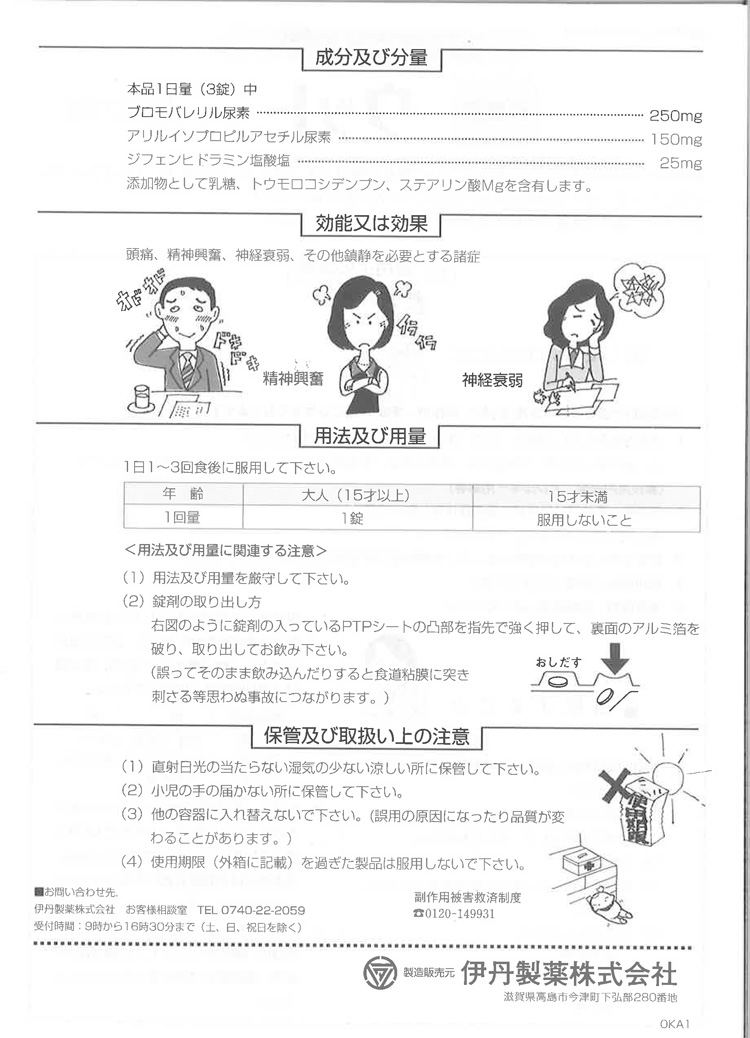 成分及び分量
本品1日量（3錠）中
ブロモバレリル尿素 250mg
アリルイソプロピルアセチル尿素 150mg
ジフェンヒドラミン塩酸塩 25mg
添加物として乳糖、トウモロコシデンプン、ステアリン酸Mgを含有します。
効能又は効果
頭痛、精神興奮、神経衰弱、その他鎮静を必要とする諸症
オドオド
ドキドキ
イライラ
精神興奮
神経衰弱
用法及び用量
1日1～3回食後に服用して下さい。
年 齢 大人（15才以上） 15才未満
1回量 1錠 服用しないこと
＜用法及び用量に関連する注意＞
（1）用法及び用量を厳守して下さい。
（2）錠剤の取り出し方
右図のように錠剤の入っているPTPシートの凸部を指先で強く押して、裏面のアルミ箔を
破り、取り出してお飲み下さい。
（誤ってそのまま飲み込んだりすると食道粘膜に突き
刺さる等思わぬ事故につながります。）
おしだす
保管及び取扱い上の注意
（1）直射日光の当たらない湿気の少ない涼しい所に保管して下さい。
（2）小児の手の届かない所に保管して下さい。
（3）他の容器に入れ替えないで下さい。（誤用の原因になったり品質が変
わることがあります。）
（4）使用期限（外箱に記載）を過ぎた製品は服用しないで下さい。
使用期限
■お問い合わせ先.
伊丹製薬株式会社 お客様相談室 TEL 0740-22-2059
受付時間：9時から16時30分まで（土、日、祝日を除く）
副作用被害救済制度
☎0120-149931
製造販売元 伊丹製薬株式会社
滋賀県高島市今津町下弘部280番地
OKA1